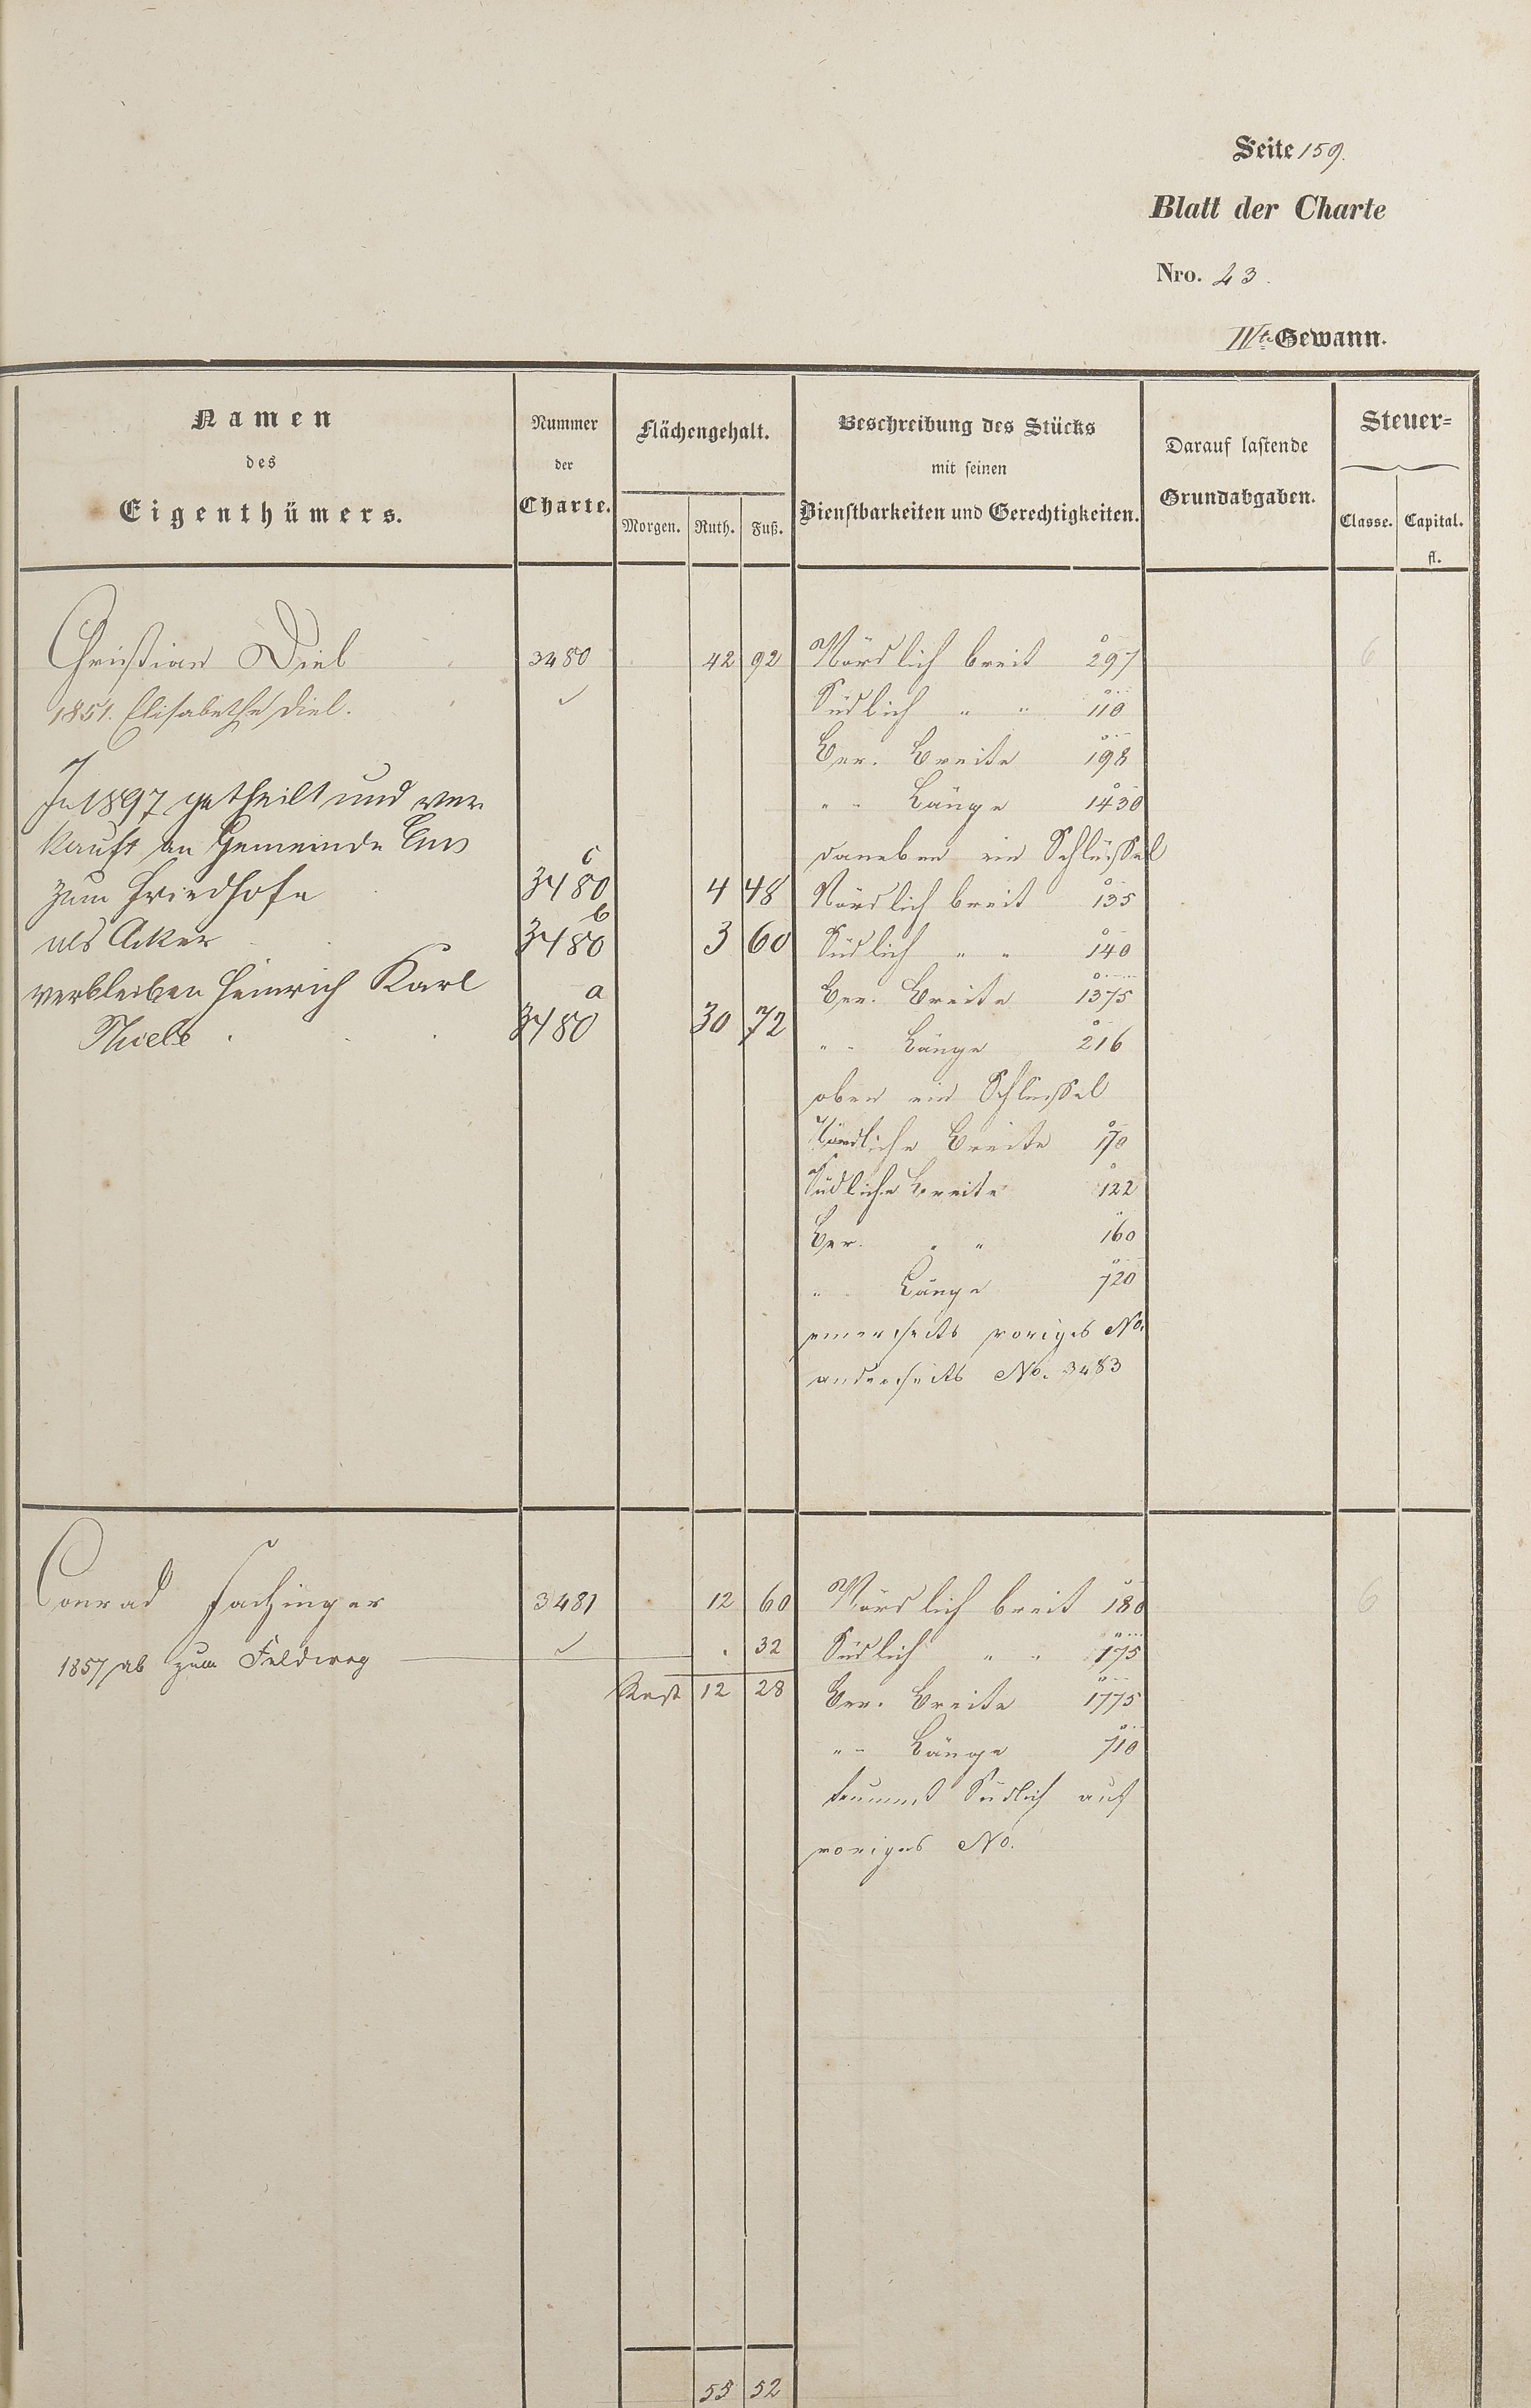 Seite 159.
Blatt der Charte
Nro. 23.
IVte Gewann.
Namen
des
Eigenthümers.
Nummer
der
Charte.
Flächengehalt.
Morgen. Ruth. Fuß.
Beschreibung des Stücks
mit seinen
Dienstbarkeiten und Gerechtigkeiten.
Darauf lastende
Grundabgaben.
Steuer-
Classe. Capital.
fl.
Christian Diel 3480 42 92 Nördlich breit 297 6
1851. Elisabethe Diel. Südlich " " 110
Ber. Breite 198
In 1897 getheilt und ver- " " Länge 1430
kauft an Gemeinde Ems daneben ein Schlüssel
zum Friedhofe 3480 c 4 48 Nördlich breit 135
als Acker 3480 b 3 60 Südlich " " 140
verbleiben Heinrich Karl Ber. Breite 1375
Thiele 3480 a 30 72 " " Länge 216
oben ein Schlüssel
Nördliche Breite 170
Südliche Breite 122
Ber. " " 160
" Länge 720
einerseits voriges No.
anderseits No. 3483
Conrad Fachinger 3481 12 60 Nördlich breit 180 6
1857 ab zum Feldweg . 32 Südlich " " 175
Rest 12 28 Ber. Breite 1775
" " Länge 710
Südlich auf
voriges No.
55 52